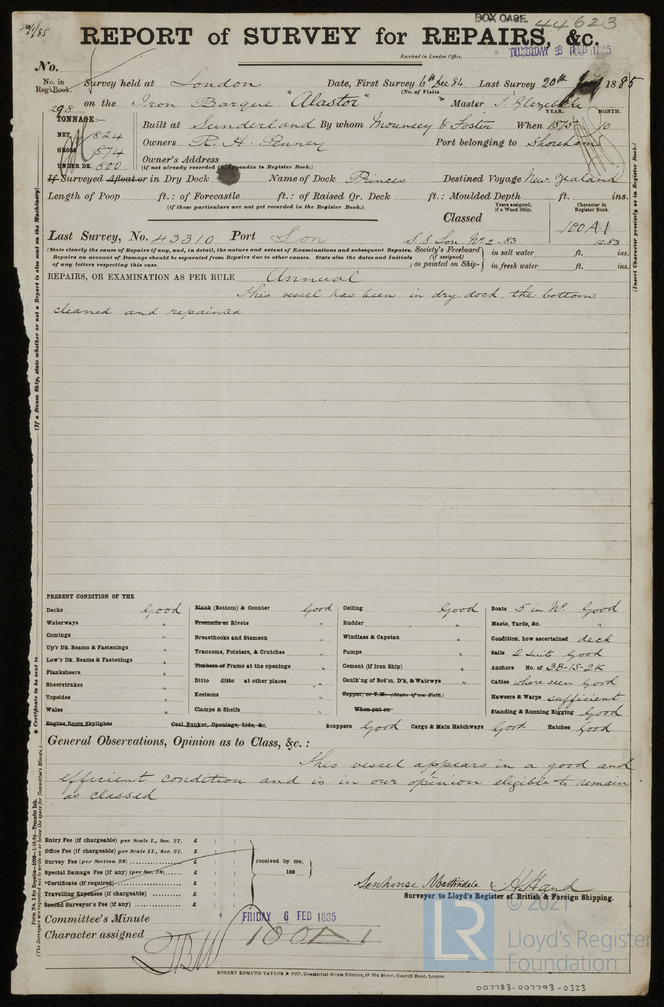 BOX CASE 44623
REPORT of SURVEY for REPAIRS, &c.
Received in London Office, THURSDAY 5 FEB 1885
No.
No. in Reg. Book. Survey held at London Date, First Survey 6th Dec 84 Last Survey 20th 1885
(No. of Visits
298 on the Iron Barque "Alastor" Master
TONNAGE:— YEAR. MONTH.
NET 824 Built at Sunderland By whom Mounsey & Foster When 1875 10
GROSS 874 Owners R. H. Penney Port belonging to Shoreham
UNDER DK. 800 Owner's Address
(if not already recorded in Appendix to Register Book.)
If Surveyed Afloat or in Dry Dock Name of Dock Princes Destined Voyage New Zealand
Length of Poop ft.: of Forecastle ft.: of Raised Qr. Deck ft.: Moulded Depth ft. ins.
(if these particulars are not yet recorded in the Register Book.)
Years assigned, if a Wood Ship. Character in Register Book.
Classed 100A1
Last Survey, No. 43310 Port Lon S.S. Lon No 2-83 12.83
(State clearly the cause of Repairs if any, and, in detail, the nature and extent of Examinations and subsequent Repairs.
Repairs on account of Damage should be separated from Repairs due to other causes. State also the dates and Initials
of any letters respecting this case.
Society's Freeboard (if assigned) as painted on Ship- in salt water ft. ins.
in fresh water ft. ins.
REPAIRS, OR EXAMINATION AS PER RULE Annual
This vessel has been in dry dock, the bottom
cleaned and repainted
PRESENT CONDITION OF THE
Decks Good
Waterways "
Comings "
Up'r Dk. Beams & Fastenings "
Low'r Dk. Beams & Fastenings "
Planksheers "
Sheerstrakes "
Topsides "
Wales "
Engine Room Skylights
Plank (Bottom) & Counter Good
Treenails or Rivets "
Breasthooks and Stemson "
Transoms, Pointers, & Crutches "
Timbers or Frame at the openings "
Ditto ditto at other places "
Keelsons "
Clamps & Shelfs "
Coal Bunker, Openings, Lids, &c.
Ceiling Good
Rudder "
Windlass & Capstan "
Pumps "
Cement (if Iron Ship) "
Caulk'ng of Bot'm, D'k, & Watrwys "
Copper, or Y.M. (State if on Felt.)
When put on
Scuppers Good Cargo & Main Hatchways Good Hatches Good
Boats 5 in No. Good
Masts, Yards, &c. "
Condition, how ascertained deck
Sails 2 Suits Good
Anchors No. of 3B-1S-2K
Cables where seen Good
Hawsers & Warps sufficient
Standing & Running Rigging Good
General Observations, Opinion as to Class, &c.:
This vessel appears in a good and
efficient condition and is in our opinion eligible to remain
as classed
Entry Fee (if chargeable) per Scale I., Sec. 27. £ : :
Office Fee (if chargeable) per Scale II., Sec. 27. £ : :
Survey Fee (per Section 28) £ : :
Special Damage Fee (if any) (per Sec. 28) £ : :
*Certificate (if required) £ : :
Travelling Expenses (if chargeable) £ : :
Second Surveyor's Fee (if any) £ : :
received by me,
188
Senhouse Martindale
Surveyor to Lloyd's Register of British & Foreign Shipping.
Committee's Minute FRIDAY 6 FEB 1885
Character assigned 100A1
ROBERT EDMUND TAYLOR & SON, Commercial Steam Printers, 19 Old Street, Goswell Road, London
© 2021
LR
Lloyd's Register
Foundation
007783-007793-0323